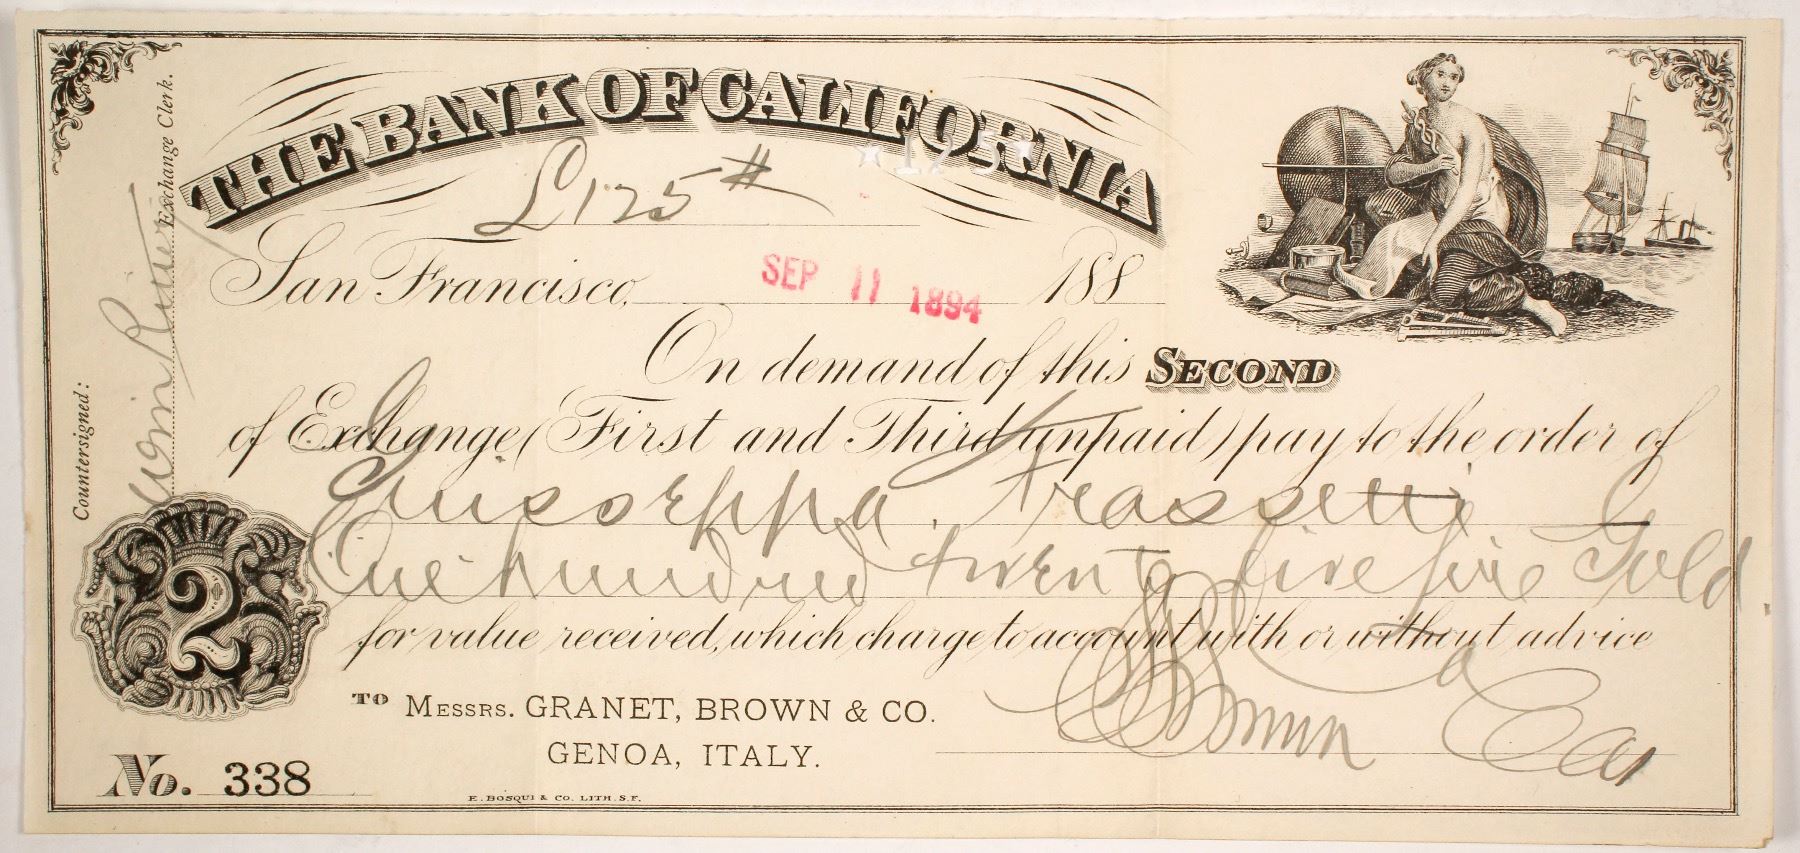 THE BANK OF CALIFORNIA
★125★
£125#
San Francisco, SEP 11 1894 188
On demand of this SECOND
of Exchange (First and Third unpaid) pay to the order of
Frassetti
One hundred twenty five lire Gold
for value received, which charge to account with or without advice
TO MESSRS. GRANET, BROWN & CO.
GENOA, ITALY.
Brown
No. 338
E. BOSQUI & CO. LITH. S.F.
2
Countersigned:
Exchange Clerk.